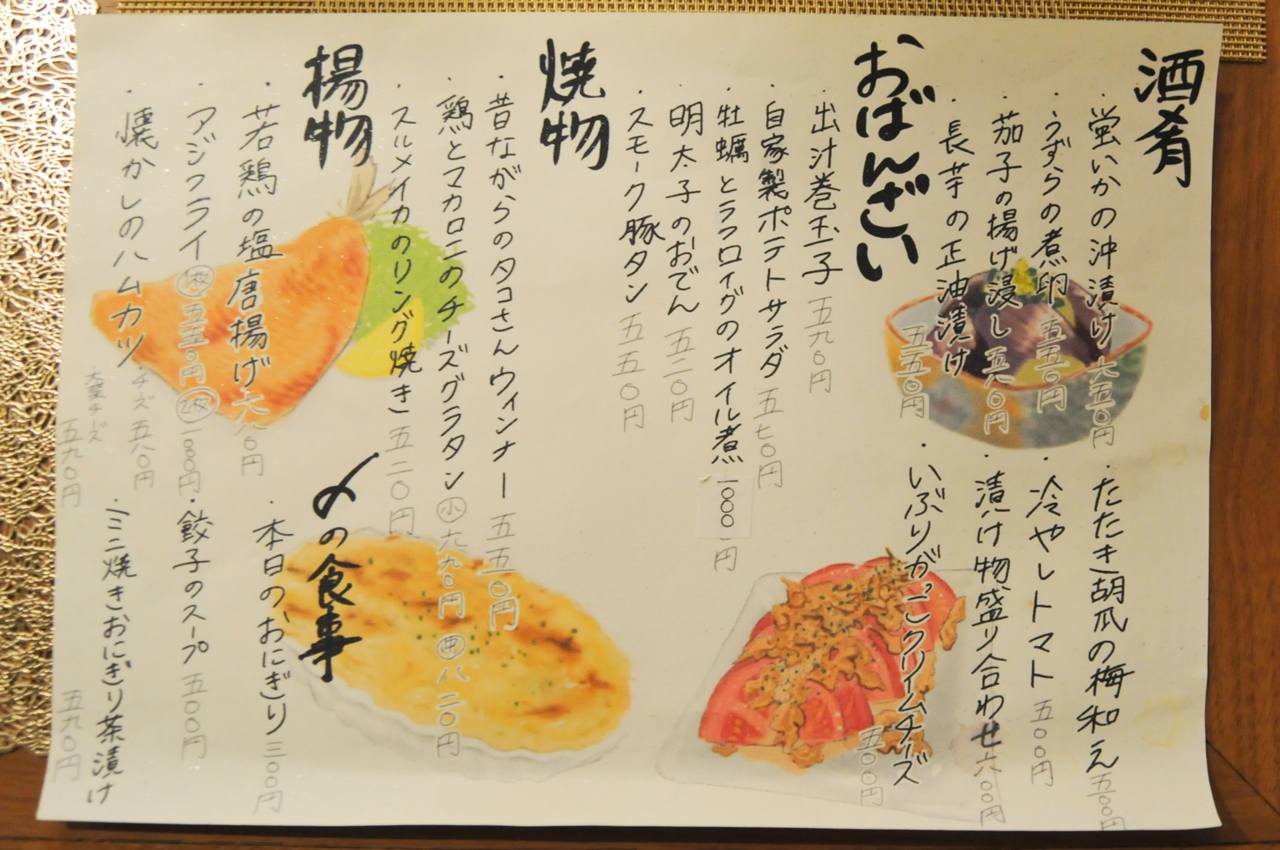 酒肴
・蛍いかの沖漬け 六五〇円
・うずらの煮卵 五五〇円
・茄子の揚げ浸し 五八〇円
・長芋の正油漬け 五五〇円
・たたき胡瓜の梅和え 五〇〇円
・冷やしトマト 五〇〇円
・漬け物盛り合わせ 六〇〇円
・いぶりがっこクリームチーズ 五〇〇円
おばんざい
・出汁巻玉子 五九〇円
・自家製ポテトサラダ 五七〇円
・牡蠣とララロイグのオイル煮 一〇〇〇円
・明太子のおでん 五二〇円
・スモーク豚タン 五五〇円
焼物
・昔ながらのタコさんウィンナー 五五〇円
・鶏とマカロニのチーズグラタン 小 六九〇円 中 八二〇円
・スルメイカのリング焼き 五二〇円
揚物
・若鶏の塩唐揚げ 六八〇円
・アジフライ 1枚 五五〇円 2枚 一一〇〇円
・懐かしのハムカツ
・チーズ 五八〇円
大葉チーズ 五九〇円
〆の食事
・本日のおにぎり 三〇〇円
・餃子のスープ 五〇〇円
・ミニ焼きおにぎり茶漬け 五九〇円